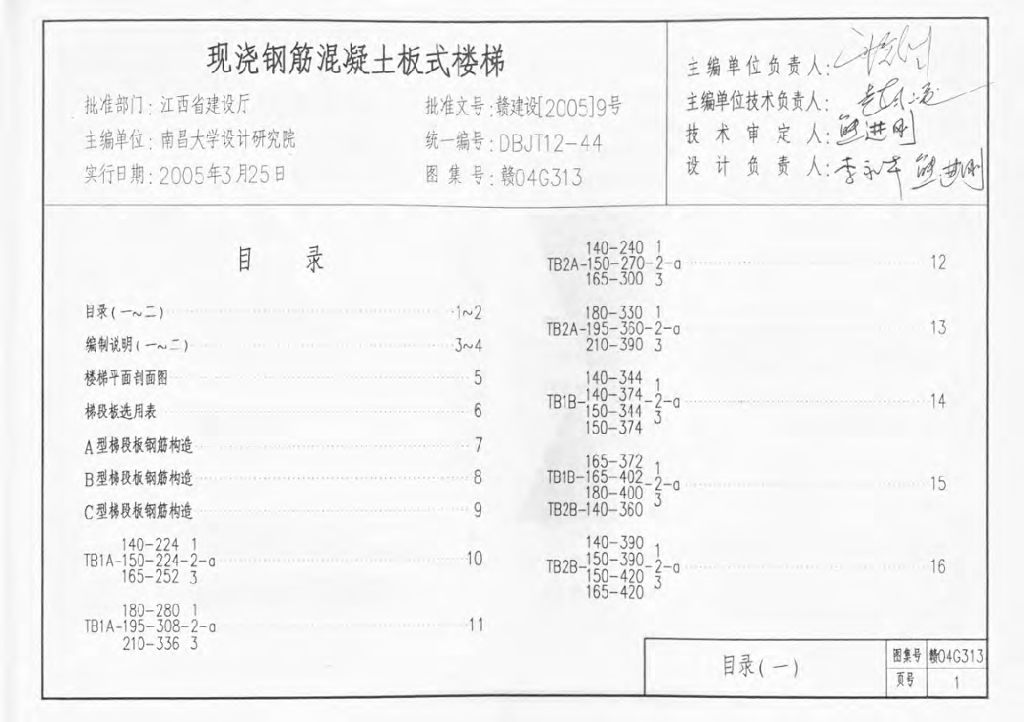 现浇钢筋混凝土板式楼梯
批准部门：江西省建设厅
主编单位：南昌大学设计研究院
实行日期：2005年3月25日
批准文号：赣建设[2005]9号
统一编号：DBJT12-44
图集号：赣04G313
主编单位负责人：
主编单位技术负责人：
技术审定人：熊进刚
设计负责人：李永华 熊进刚
目 录
目录(一~二) 1~2
编制说明(一~二) 3~4
楼梯平面剖面图 5
梯段板选用表 6
A型梯段板钢筋构造 7
B型梯段板钢筋构造 8
C型梯段板钢筋构造 9
140-224 1
TB1A-150-224-2-a 10
165-252 3
180-280 1
TB1A-195-308-2-a 11
210-336 3
140-240 1
TB2A-150-270-2-a 12
165-300 3
180-330 1
TB2A-195-360-2-a 13
210-390 3
140-344 1
TB1B-140-374-2-a 14
150-344 3
150-374
165-372 1
TB1B-165-402-2-a 15
180-400 3
TB2B-140-360
140-390 1
TB2B-150-390-2-a 16
150-420 3
165-420
目录(一)
图集号 赣04G313
页号 1